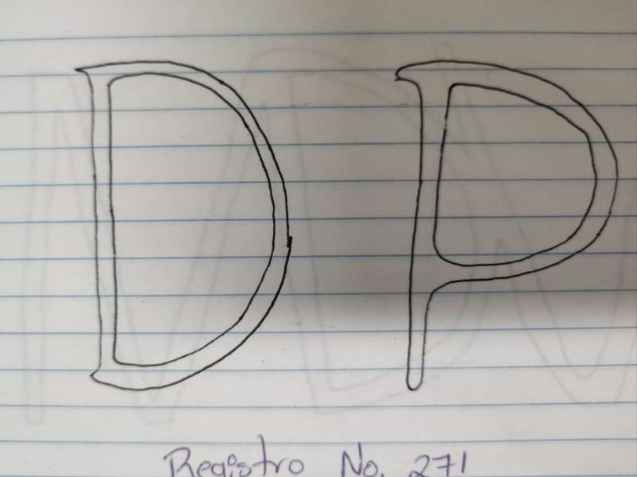 D P
Registro No. 271